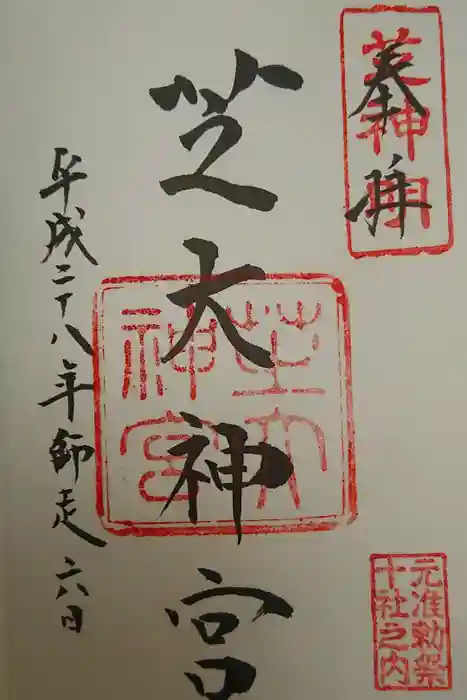 奉拝
芝神明
芝大神宮
芝大神宮
元准勅祭
十社之内
平成二十八年師走六日